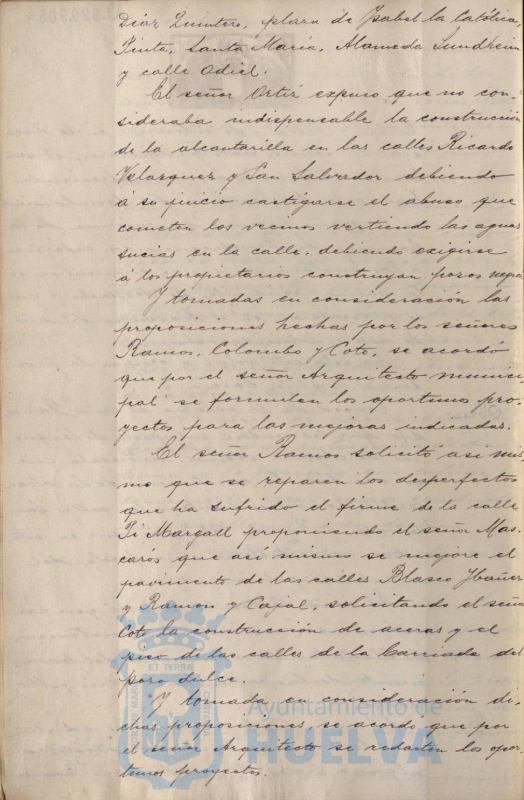 Díaz Quintero, plaza de Ysabel la Católica,
Pinta, Santa María, Alameda Sundheim
y calle Odiel.
El señor Ortiz expuso que no con-
sideraba indispensable la construcción
de la alcantarilla en las calles Ricardo
Velazquez y San Salvador debiendo
á su juicio castigarse el abuso que
cometen los vecinos vertiendo las aguas
sucias en la calle, debiendo exigirse
á los propietarios construyan pozos negros
Y tomadas en consideración las
proposiciones hechas por los señores
Ramos, Colombo y Coto, se acordó
que por el señor Arquitecto munici
pal se formulen los oportunos pro-
yectos para las mejoras indicadas.
El señor Ramos solicitó asi mis
mo que se reparen los desperfectos
que ha sufrido el firme de la calle
Pi Margall proponiendo el señor Mas-
carós que así mismo se mejore el
pavimento de las calles Blasco Ybañez
y Ramon y Cajal, solicitando el señor
Coto la construcción de aceras y el
piso de las calles de la Barriada del
pozo dulce.
Y tomada en consideración di-
chas proposiciones se acordo que por
el señor Arquitecto se redacten los opor-
tunos proyectos.
ET TERRA
Ayuntamiento de
HUELVA